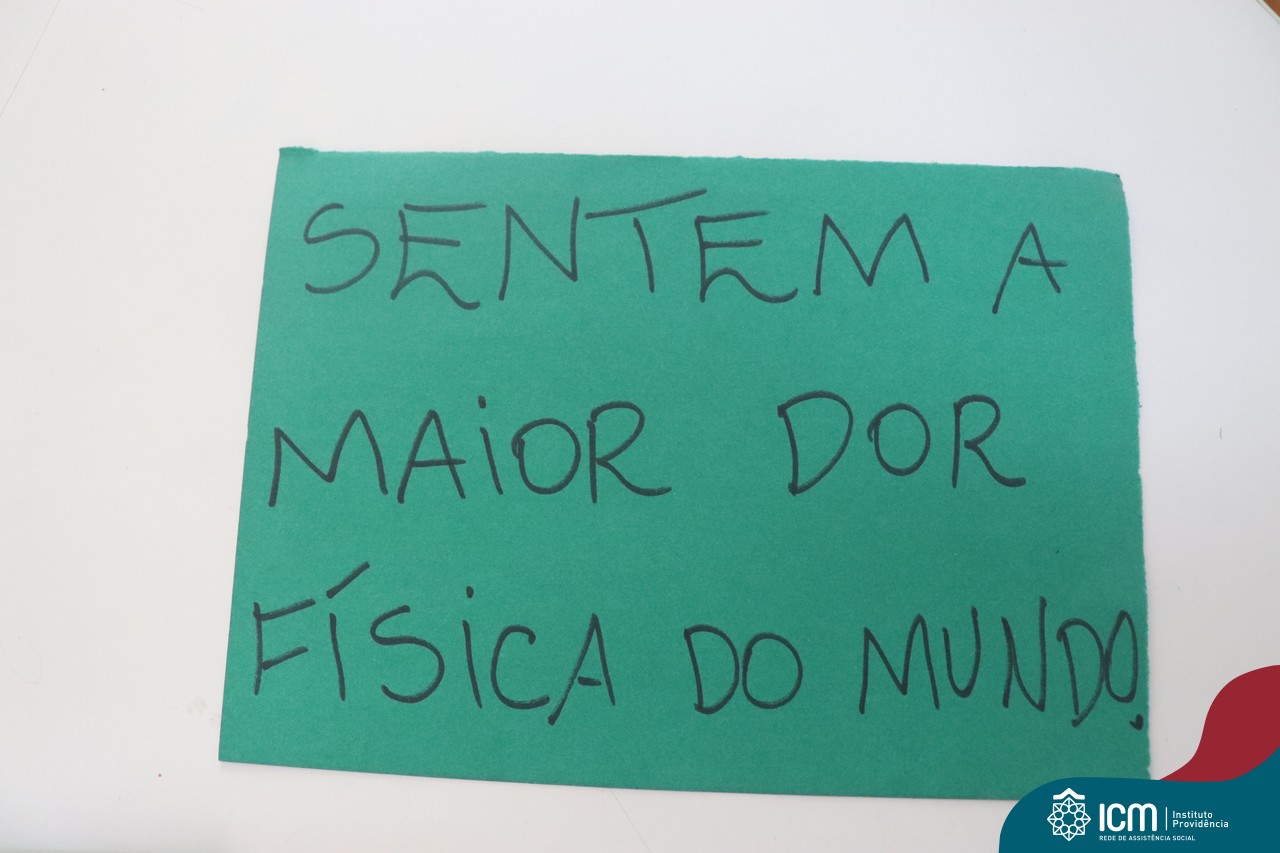 SENTEM A
MAiOR DOR
FÍSiCA DO MUNDO.
ICM
Instituto
Providência
REDE DE ASSISTÊNCIA SOCIAL